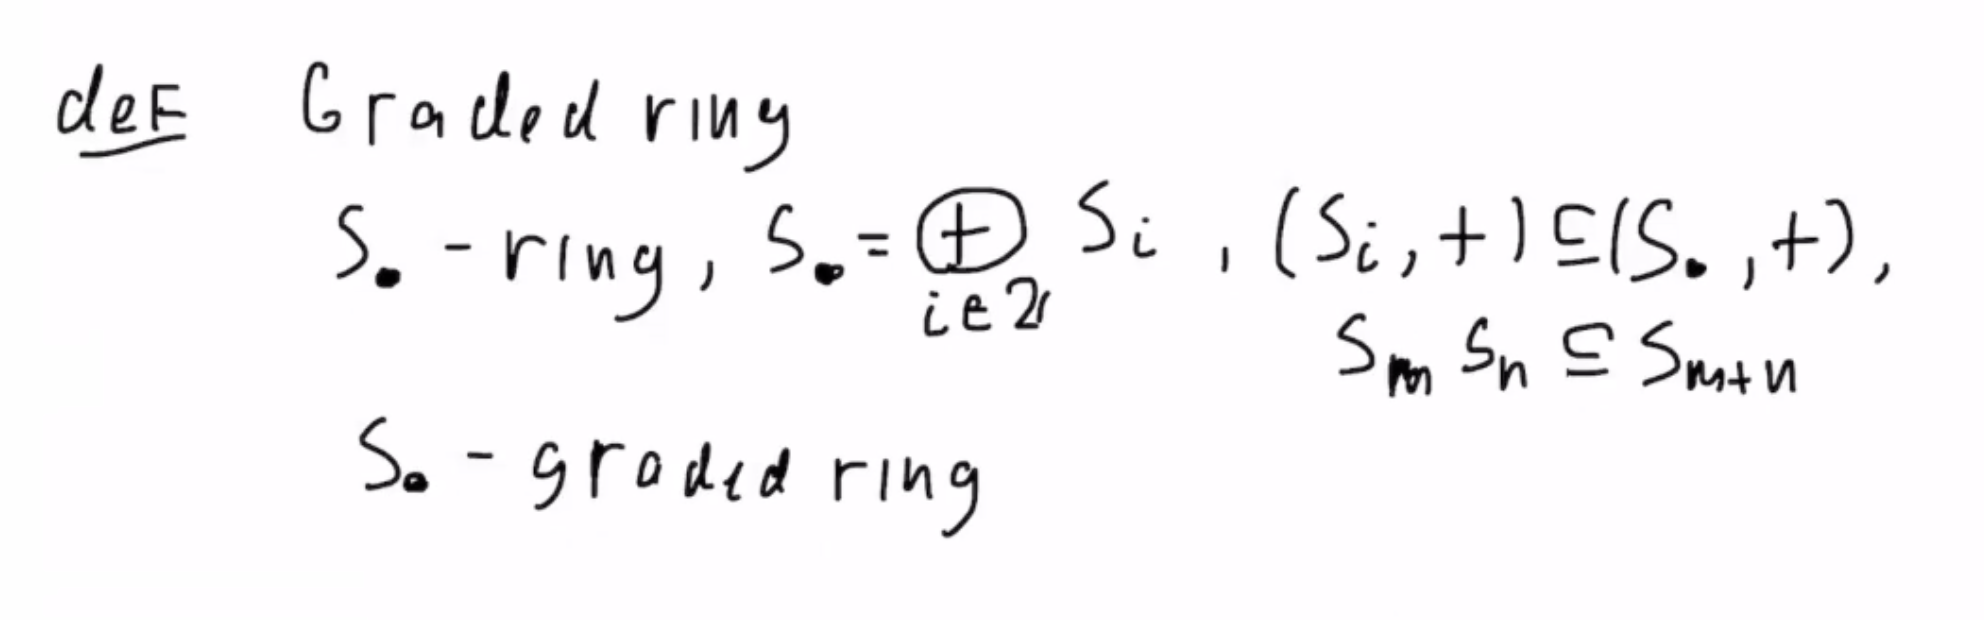 def Graded ring
S• - ring, S• = ⊕ i∈ℤ Si, (Si, +) ⊆ (S•, +),
Sm Sn ⊆ Sm+n
S• - graded ring